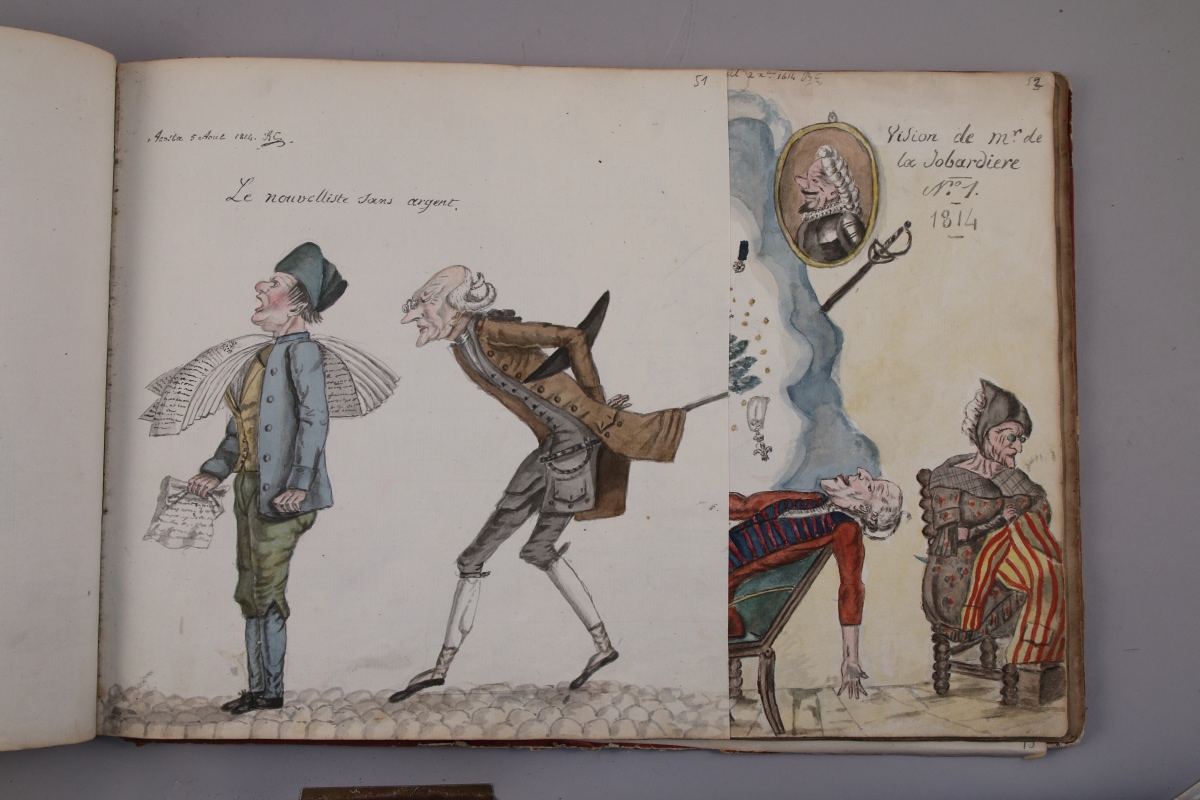 51
5 Aout 1814.
Le nouvelliste sans argent.
1814
52
Vision de mr. de
la Jobardiere
No. 1.
1814